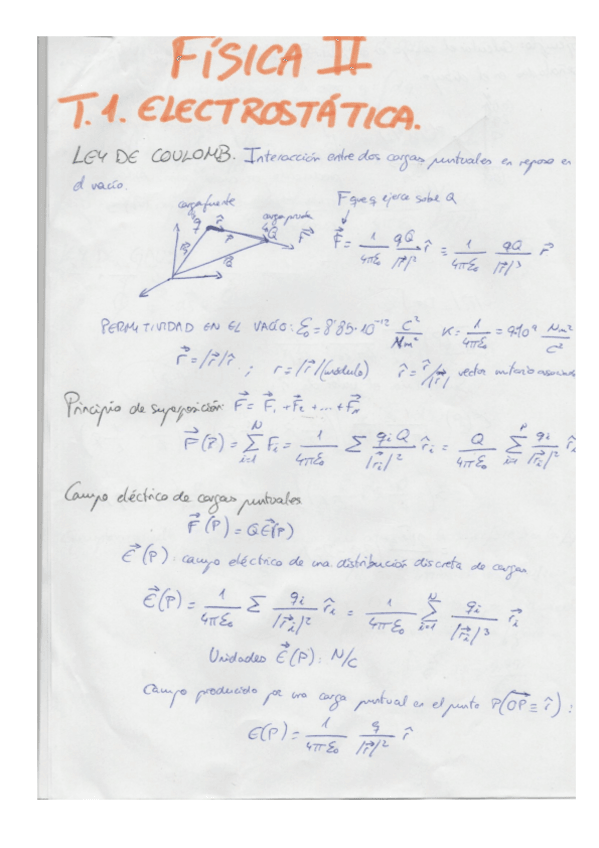 FÍSICA II
T.1. ELECTROSTÁTICA.
LEY DE COULOMB. Interacción entre dos cargas puntuales en reposo en
el vacío.
carga fuente
carga prueba
F que q ejerce sobre Q
q r̂ r⃗ Q F⃗
F⃗ = 1/4πε₀ qQ/|r⃗|² r̂ = 1/4πε₀ qQ/|r⃗|³ r⃗
PERMITIVIDAD EN EL VACÍO: ε₀ = 8'85·10⁻¹² C²/Nm² K = 1/4πε₀ = 9·10⁹ Nm²/C²
r⃗ = |r⃗| r̂ ; r = |r⃗| (módulo) r̂ = r⃗/|r⃗| vector unitario
Principio de superposición: F⃗ = F⃗₁ + F⃗₂ + ... + F⃗ₙ
F⃗(P) = Σᵢ₌₁ᴺ Fᵢ = 1/4πε₀ Σ qᵢQ/|r⃗ᵢ|² r̂ᵢ = Q/4πε₀ Σ qᵢ/|r⃗ᵢ|² r̂ᵢ
Campo eléctrico de cargas puntuales
F⃗(P) = QE⃗(P)
E⃗(P): campo eléctrico de una distribución discreta de cargas
E⃗(P) = 1/4πε₀ Σ qᵢ/|r⃗ᵢ|² r̂ᵢ = 1/4πε₀ Σᵢ₌₁ᴺ qᵢ/|r⃗ᵢ|³ r⃗ᵢ
Unidades E⃗(P): N/C
Campo producido por una carga puntual en el punto P(OP⃗ ≡ r̂):
E(P) = 1/4πε₀ q/|r⃗|² r̂